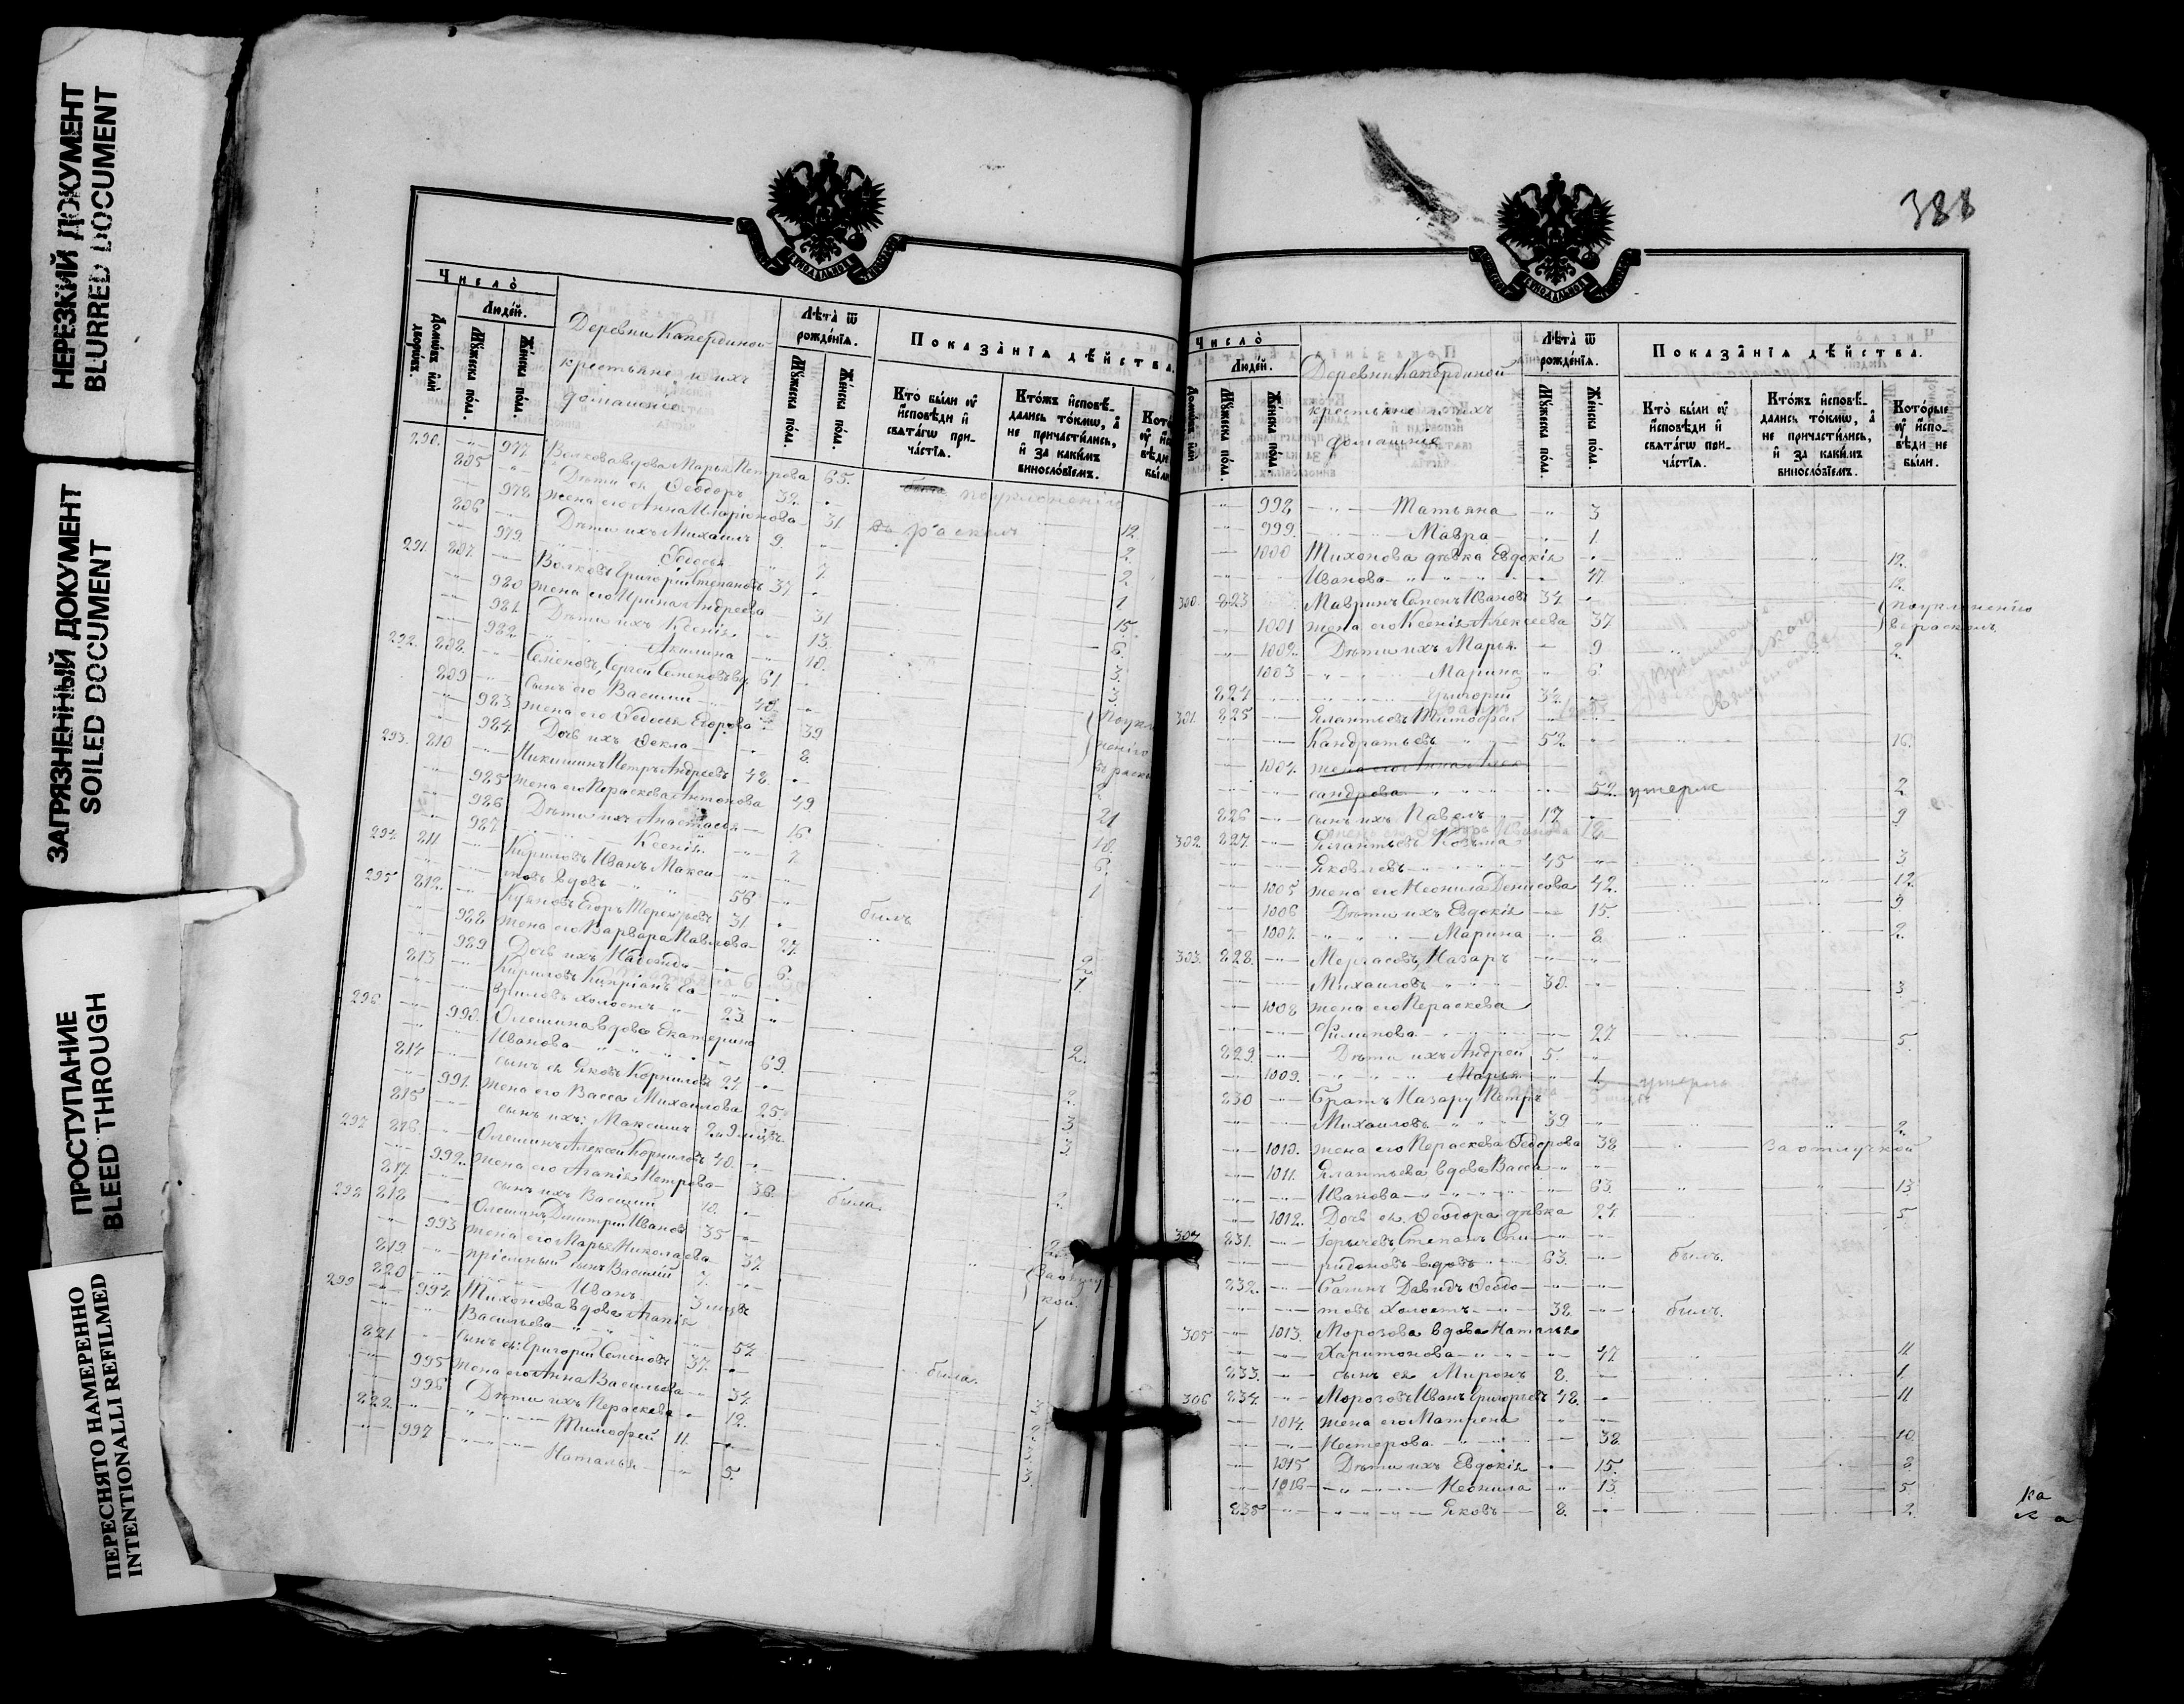 НЕРЕЗКИЙ ДОКУМЕНТ
BLURRED DOCUMENT
ЗАГРЯЗНЕННЫЙ ДОКУМЕНТ
SOILED DOCUMENT
ПРОСТУПАНИЕ
BLEED THROUGH
ПЕРЕСНЯТО НАМЕРЕННО
INTENTIONALLI REFILMED
Число̀
Людей.
Мꙋжеска пола.
Женска пола.
Деревни Кабординой
крестьяне и ихъ
домашніе
Лѣта̀ ѿ
рожденїѧ.
Мꙋжеска пола.
Женска пола.
Показанїѧ дѣйства.
Кто были ꙋ
исповѣди и
свѧтагѡ при-
частїѧ.
Ктожъ исповѣ-
дались токмѡ, а
не причастились,
и за какимъ
винословїемъ.
290. 977 Волкова вдова Марья Петрова 65.
805 Дѣти ея Ѳеодоръ 32. по уклоненію
978. жена его Анна Иларіонова 31 въ расколъ 12
806 Дѣти ихъ Михаилъ 9. 2.
979. Ѳедосья 7. 2.
291. 807. Волковъ Григорій Степановъ 37 1
980 жена его Ирина Андреева 31 15.
981. Дѣти ихъ Ксенія 13. 6.
982. Акилина 10. 3.
292. 808. Семеновъ, Сергей Семеновъ вд. 61 3.
809 Сынъ его Василій 40.
983 жена его Ѳедосья Егорова 39
984. Дочь ихъ Ѳекла 8.
293. 810 Никишинъ Петръ Андреевъ 48.
985 жена его Параскева Антонова 49 21
986 Дѣти ихъ Анастасія 16 10.
987. Ксенія 7. 6.
294. 811 Кириловъ Иванъ Макси-
мовъ вдовъ 56 былъ
295 812. Куяновъ Егоръ Терентьевъ 31.
988 жена его Варвара Павлова 27.
989 Дочь ихъ Надежда 6. 2.
813 Кириловъ Кипріанъ Га-
вриловъ холостъ 23.
296. 990. Олешина вдова Екатерина
Иванова 69. 2.
814 сынъ ея Яковъ Корниловъ 27.
991. жена его Васса Михаилова 25. 2.
815 сынъ ихъ: Максимъ 3.
297 816. Олешинъ Алексей Корниловъ 40. 3.
992. жена его Агапія Петрова 36. была.
817. сынъ ихъ Василий 10. 2.
298 818 Олешинъ, Дмитрій Ивановъ 35
993 жена его Марья Николаева 37.
819. пріемный сынъ Василий 7.
820 Иванъ
299 994. Тихонова вдова Агапія
Васильева 57.
821 сынъ ея Григорій Семеновъ 37. была.
995 жена его Анна Васильева 34.
996 Дѣти ихъ Параскева 12.
822. Тимофей 11.
997 Наталья 5.
388
Число̀
Людей.
Мꙋжеска пола.
Женска пола.
Деревни Кабординой
крестьяне и ихъ
домашніе
Лѣта̀ ѿ
рожденїѧ.
Мꙋжеска пола.
Женска пола.
Показанїѧ дѣйства.
Кто были ꙋ
исповѣди и
свѧтагѡ при-
частїѧ.
Ктожъ исповѣ-
дались токмѡ, а
не причастились,
и за какимъ
винословїемъ.
Которые
ꙋ испо-
вѣди не
были.
998 Татьяна 3
999. Мавра 1
1000 Тихонова дѣвка Евдокія 12.
Иванова 47. 12.
300. 823 Мавринъ Семенъ Ивановъ 34. по уклоненію
1001 жена его Ксенія Алексеева 37 въ расколъ
1002. Дѣти ихъ Марья 9 2.
1003 Марина 6.
824. Григорій
301. 825 Ялантьевъ Тимофей
Кандратьевъ 52. 16.
1004. жена его Анна Алек
сандрова 52. умерла 2
826 сынъ ихъ Павелъ 17 9
302. 827. Ялантьевъ Козьма
Яковлевъ 45 3
1005 жена его Неонила Денисова 42. 12.
1006 Дѣти ихъ Евдокія 15. 9
1007. Марина 8. 2.
303. 828. Мергасовъ, Назаръ
Михаиловъ 30. 3
1008 жена его Параскева
Филипова 27 5.
829. Дѣти ихъ Андрей 5.
1009. Марья 1. умерла
830 Братъ Назару Петръ
Михаиловъ 39 2.
1010. жена его Параскева Ѳедорова 38 За отлучкой
1011. Ялантьева вдова Васса
Иванова 63. 13.
1012. Дочь ея, Ѳеодора дѣвка 24. 5.
304 831. Горычевъ Степанъ Спи-
ридоновъ вдовъ 63. былъ.
832. Багинъ Давидъ Ѳедо-
товъ холостъ 38 былъ.
305 1013. Морозова вдова Наталья
Харитонова 47. 11
833. сынъ ея Миронъ 8. 1.
306 834. Морозовъ Иванъ Григорьевъ 48. 11
1014. жена его Матрена
Нестерова 38. 10.
1015 Дѣти ихъ Евдокія 15. 8.
1016 Неонила 13. 5
835 Яковъ 8. 2.